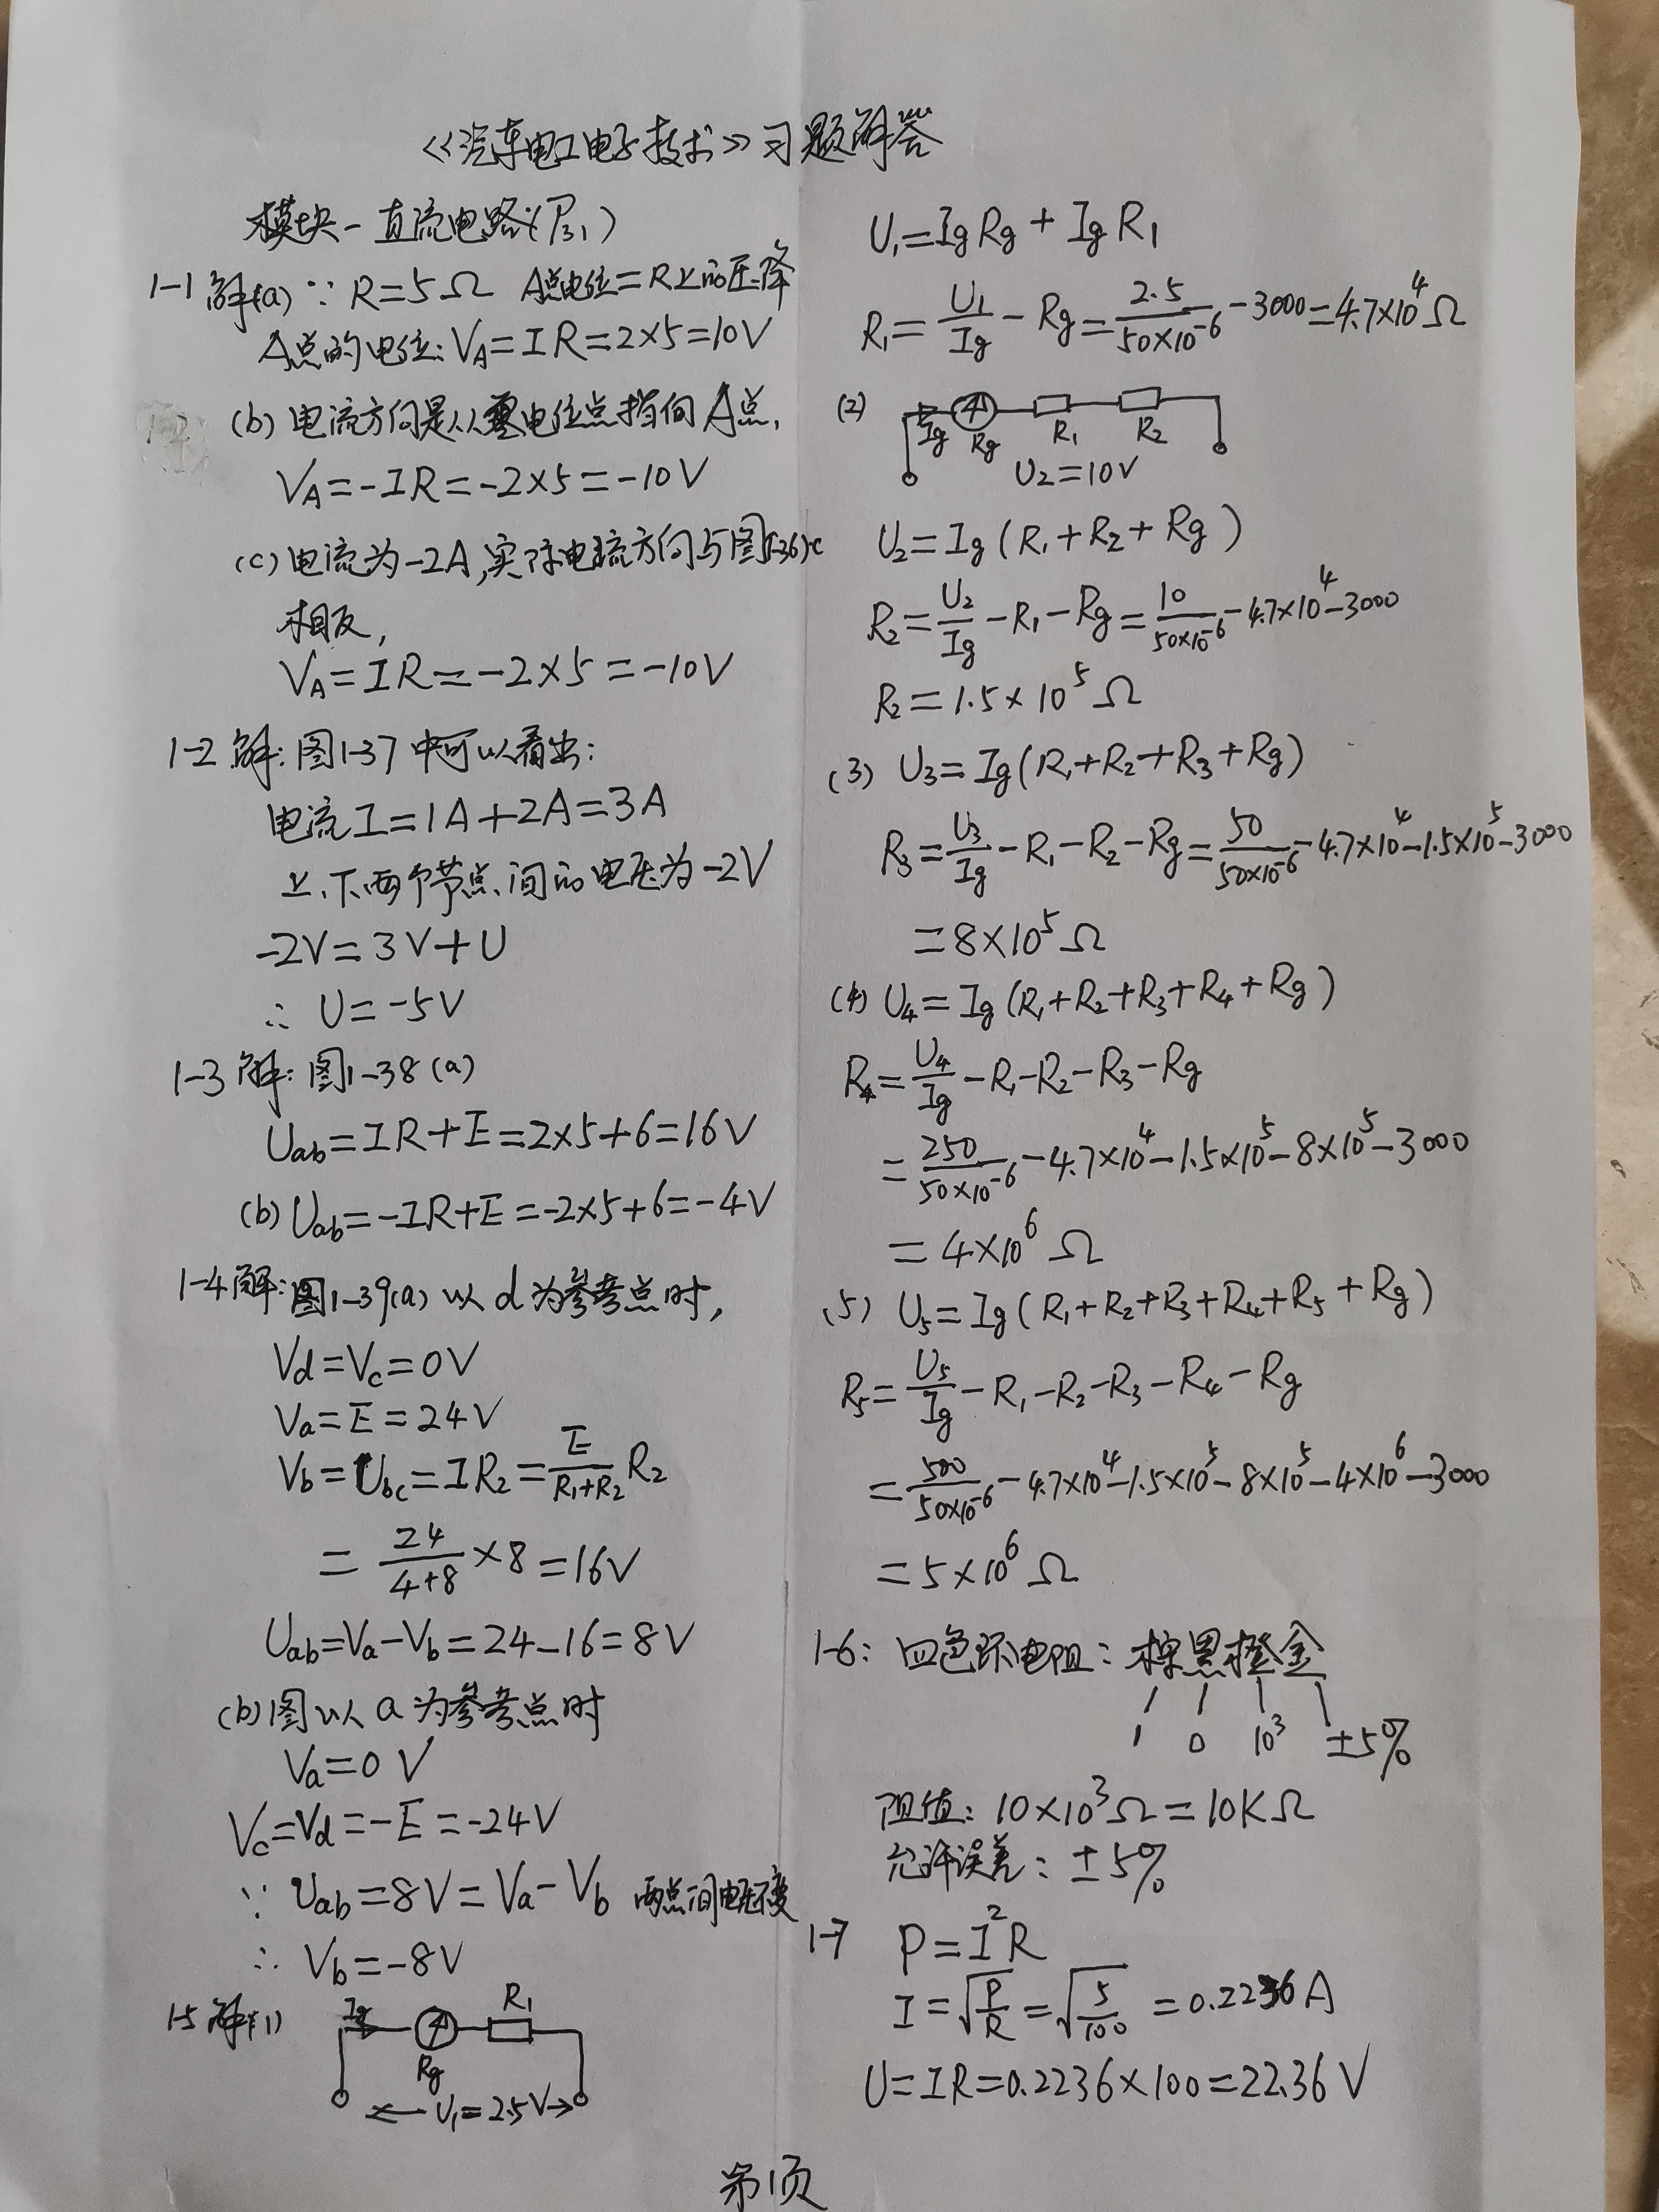 《汽车电工电子技术》习题解答
模块一 直流电路(P31)
1-1 解(a) ∵ R=5Ω A点电位=R上的压降
A点的电位: VA=IR=2×5=10V
(b) 电流方向是从零电位点指向A点,
VA=-IR=-2×5=-10V
(c) 电流为-2A,实际电流方向与图(1-36)c
相反,
VA=IR=-2×5=-10V
1-2 解: 图1-37中可以看出:
电流I=1A+2A=3A
上、下两个节点间的电压为-2V
-2V=3V+U
∴ U=-5V
1-3 解: 图1-38(a)
Uab=IR+E=2×5+6=16V
(b) Uab=-IR+E=-2×5+6=-4V
1-4 解: 图1-39(a) 以d为参考点时,
Vd=Vc=0V
Va=E=24V
Vb=Ubc=IR2=E/(R1+R2) R2
=24/(4+8)×8=16V
Uab=Va-Vb=24-16=8V
(b)图以a为参考点时
Va=0V
Vc=Vd=-E=-24V
∵ Uab=8V=Va-Vb 两点间电压不变
∴ Vb=-8V
1-5 解(1)
Ig Rg R1
U1=2.5V
U1=IgRg+IgR1
R1=U1/Ig-Rg=2.5/(50×10^-6)-3000=4.7×10^4Ω
(2) Ig Rg R1 R2
U2=10V
U2=Ig(R1+R2+Rg)
R2=U2/Ig-R1-Rg=10/(50×10^-6)-4.7×10^4-3000
R2=1.5×10^5Ω
(3) U3=Ig(R1+R2+R3+Rg)
R3=U3/Ig-R1-R2-Rg=50/(50×10^-6)-4.7×10^4-1.5×10^5-3000
=8×10^5Ω
(4) U4=Ig(R1+R2+R3+R4+Rg)
R4=U4/Ig-R1-R2-R3-Rg
=250/(50×10^-6)-4.7×10^4-1.5×10^5-8×10^5-3000
=4×10^6Ω
(5) U5=Ig(R1+R2+R3+R4+R5+Rg)
R5=U5/Ig-R1-R2-R3-R4-Rg
=500/(50×10^-6)-4.7×10^4-1.5×10^5-8×10^5-4×10^6-3000
=5×10^6Ω
1-6: 四色环电阻: 棕黑橙金
1 0 10^3 ±5%
阻值: 10×10^3Ω=10KΩ
允许误差: ±5%
1-7 P=I^2R
I=√(P/R)=√(5/100)=0.2236A
U=IR=0.2236×100=22.36V
第1页